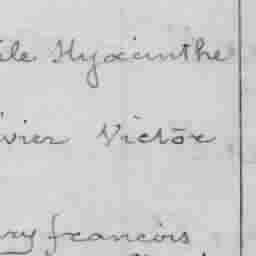 ile Hyacinthe
ivier Victor
ry francois